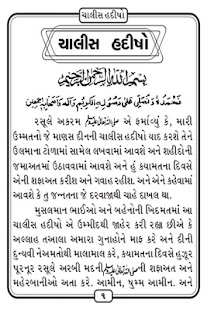 ચાલીસ હદીષો
ચાલીસ હદીષો
بسم الله الرحمن الرحيم
نحمده ونصلي على رسوله الكريم وآله وأصحابه أجمعين
રસૂલે અકરમ ﷺ એ ફર્માવ્યું કે, મારી
ઉમ્મતનો જે માણસ દીનની ચાલીસ હદીષો યાદ કરશે તેને
ઉલમાના ટોળામાં સામેલ લખવામાં આવશે અને શહીદોની
જમાઅતમાં ઉઠાવવામાં આવશે અને હું કયામતના દિવસે
એની શફાઅત કરીશ અને ગવાહ રહીશ. અને એને કહેવામાં
આવશે કે તુ જન્નતના જે દરવાજાથી ચાહે દાખલ થા.
મુસલમાન ભાઈઓ અને બહેનોની ખિદમતમાં આ
ચાલીસ હદીષો એ ઉમ્મીદથી જાહેર કરી રહ્યા છીએ કે
અલ્લાહ તઆલા અમારા ગુનાહોને માફ કરે અને દીની
દુન્યવી નેઅમતોથી માલામાલ કરે, કયામતના દિવસે હુજૂર
પૂરનૂર રસૂલે અરબી મદની ﷺ ની શફાઅત અને
મહેરબાનીઓ અતા કરે. આમીન, ષુમ્મ આમીન. અને
૧